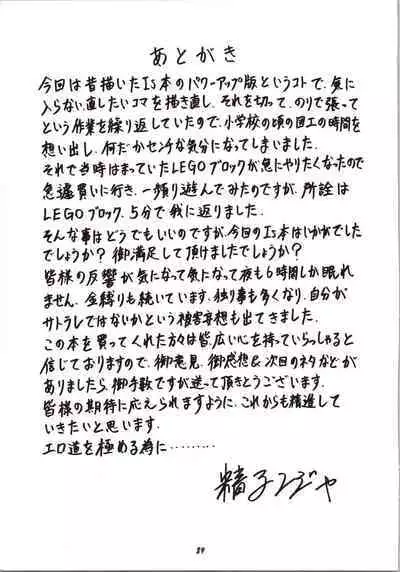 あとがき
今回は昔描いたI"s本のパワーアップ版というコトで、気に
入らない直したいコマを描き直し、それを切って、のりで張って
という作業を繰り返していたので、小学校の頃の図工の時間を
想い出し、何だかセンチな気分になってしまいました。
それで当時はまっていたLEGOブロックが急にやりたくなったので
急遽買いに行き、一頻り遊んでみたのですが、所詮は
LEGOブロック、5分で我に返りました。
そんな事はどうでもいいのですが、今回のI"s本はいかがでした
でしょうか?御満足して頂けましたでしょうか?
皆様の反響が気になって気になって夜も6時間しか眠れ
ません。金縛りも続いています。独り事も多くなり、自分が
サトラレではないかという被害妄想も出てきました。
この本を買ってくれた方々は皆、広い心を持っていらっしゃると
信じておりますので、御意見、御感想&次回のネタなどが
ありましたら、御手数ですが送って頂きとうございます。
皆様の期待に応えられますように、これからも精進して
いきたいと思います。
エロ道を極める為に………
精子ンジャ
29